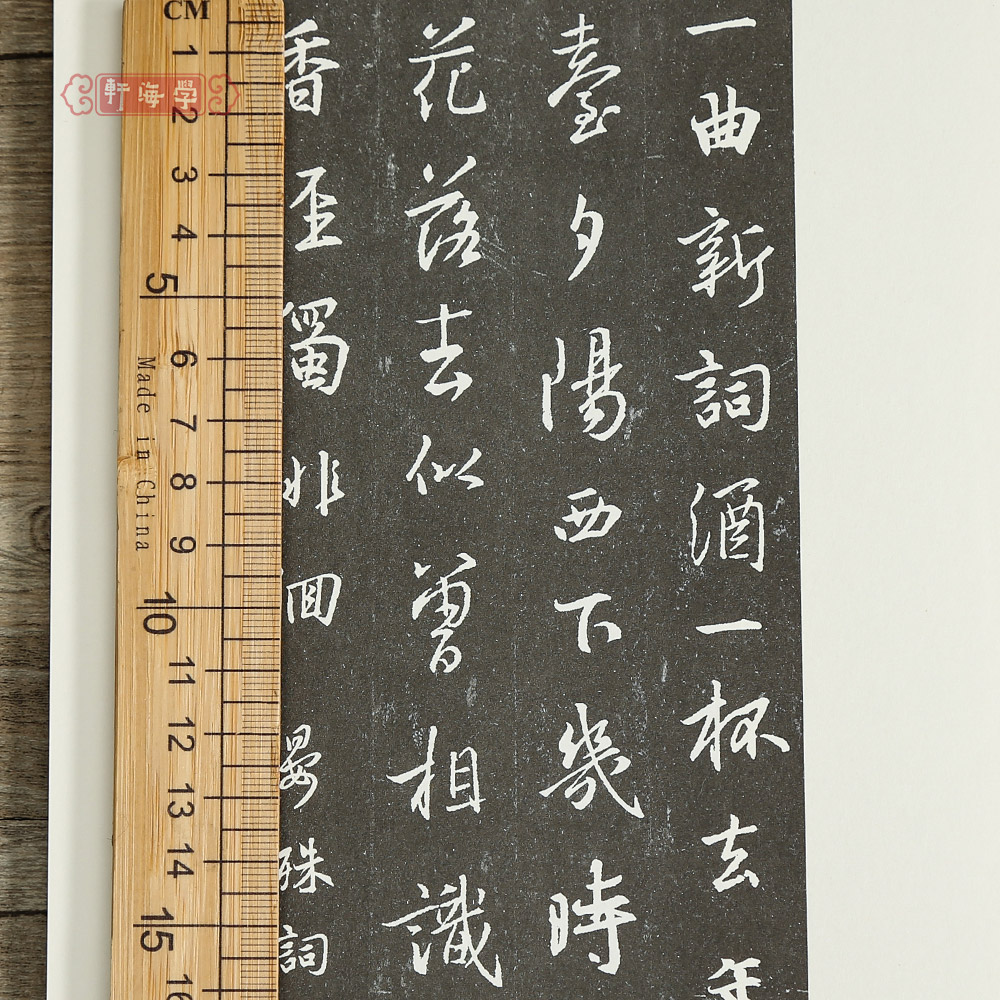 一曲新詞酒一杯去年
臺夕陽西下幾時
花落去似曾相識
香徑獨徘徊
晏殊詞
學海軒
CM
1
2
3
4
5
6
7
8
9
10
11
12
13
14
15
16
Made in China